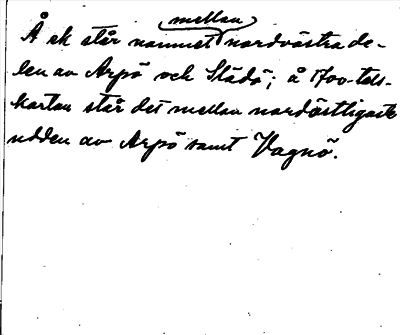 mellan
Å ek står namnet nordvästra de-
len av Arpö och Slädö; å 1700-tals-
kartan står det mellan nordöstligaste
udden av Arpö samt Vagnö.